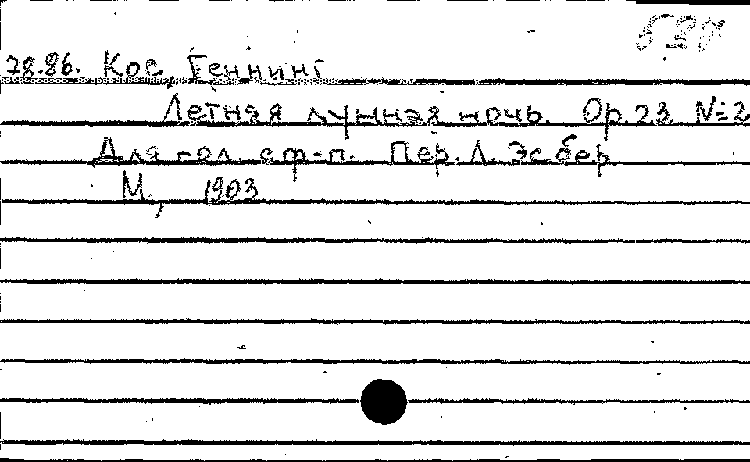 78.86. Кос, Геннинг
Летняя лунная ночь. Op. 23 N=2
Для гол. с ф-п. Пер. Л. Эсбер
М., 1903